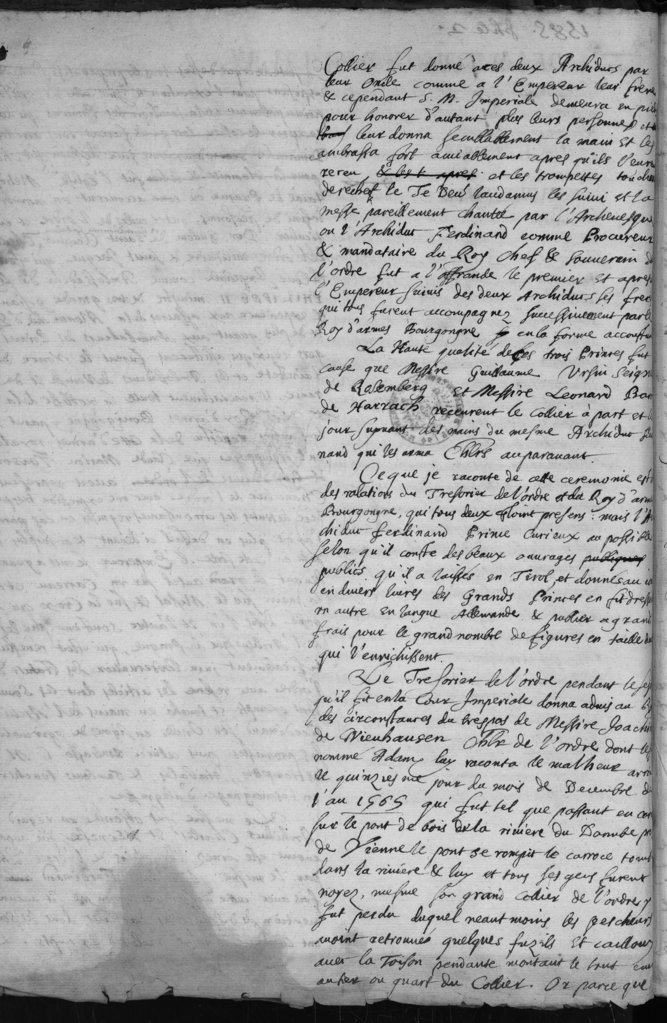 1585.
Collier fut donné a ces deux Archiducs par
leur Oncle comme a l'Empereur leur frere
& cependant S. M. Imperiale demeura en
pour honorer d'autant plus leurs personnes et
leur donna semblablement la main et les
ambrassa fort amiablement apres qu'ils l'eurent
receu et les trompettes
derechef le Te Deum laudamus les suivi et la
messe pareillement chantée par l'Archevesque
ou l'Archiduc Ferdinand comme Procureur
& mandataire du Roy chef & souverain de
l'ordre fut a l'offrande le premier et apres
l'Empereur suivis des deux Archiducs ses freres
qui tous furent accompagnez successivement par le
Roy d'armes Bourgongne en la forme
La Haute qualité de ces trois Princes fut
cause que Messire Guillaume Ursin Seigneur
de Rosemberg et Messire Leonard Baron
de Harrach receurent le Collier a part et le
jour suyvant des mains du mesme Archiduc
nand qui les arma Chlrs auparavant.
Ce que je raconte de cette ceremonie est
des relations du Tresorier de l'ordre et du Roy d'armes
Bourgongne, qui tous deux estoint presens: mais l'
chiduc Ferdinand Prince curieux au possible
selon qu'il conste des beaux ouvrages publiques
publics, qu'il a laissés en Tirol, et donnés au
en divers livres les Grands Princes en
un autre en langue Allemande & publier a grand
frais pour le grand nombre de figures en taille
qui l'enrichissent.
Le Tresorier de l'ordre pendant le
qu'il fit en la Cour Imperiale donna advis au
des circonstances du trespas de Messire Joachim
de Nieuhausen Chlr de l'Ordre dont le
nommé Adam luy raconta le malheur
le quinziesme jour du mois de Decembre de
l'an 1565 qui fut tel que passant en
sur le pont de bois de la riviere du Danube
de Vienne le pont se rompit le carroce tomba
dans la riviere & luy et tous ses gens furent
noyez, mesme son grand colier de l'ordre y
fut perdu duquel neantmoins les pescheurs
retrouvé quelques fuzils et cailloux
avec la Toison pendante montant le tout
au tier ou quart du Collier. Or parce que